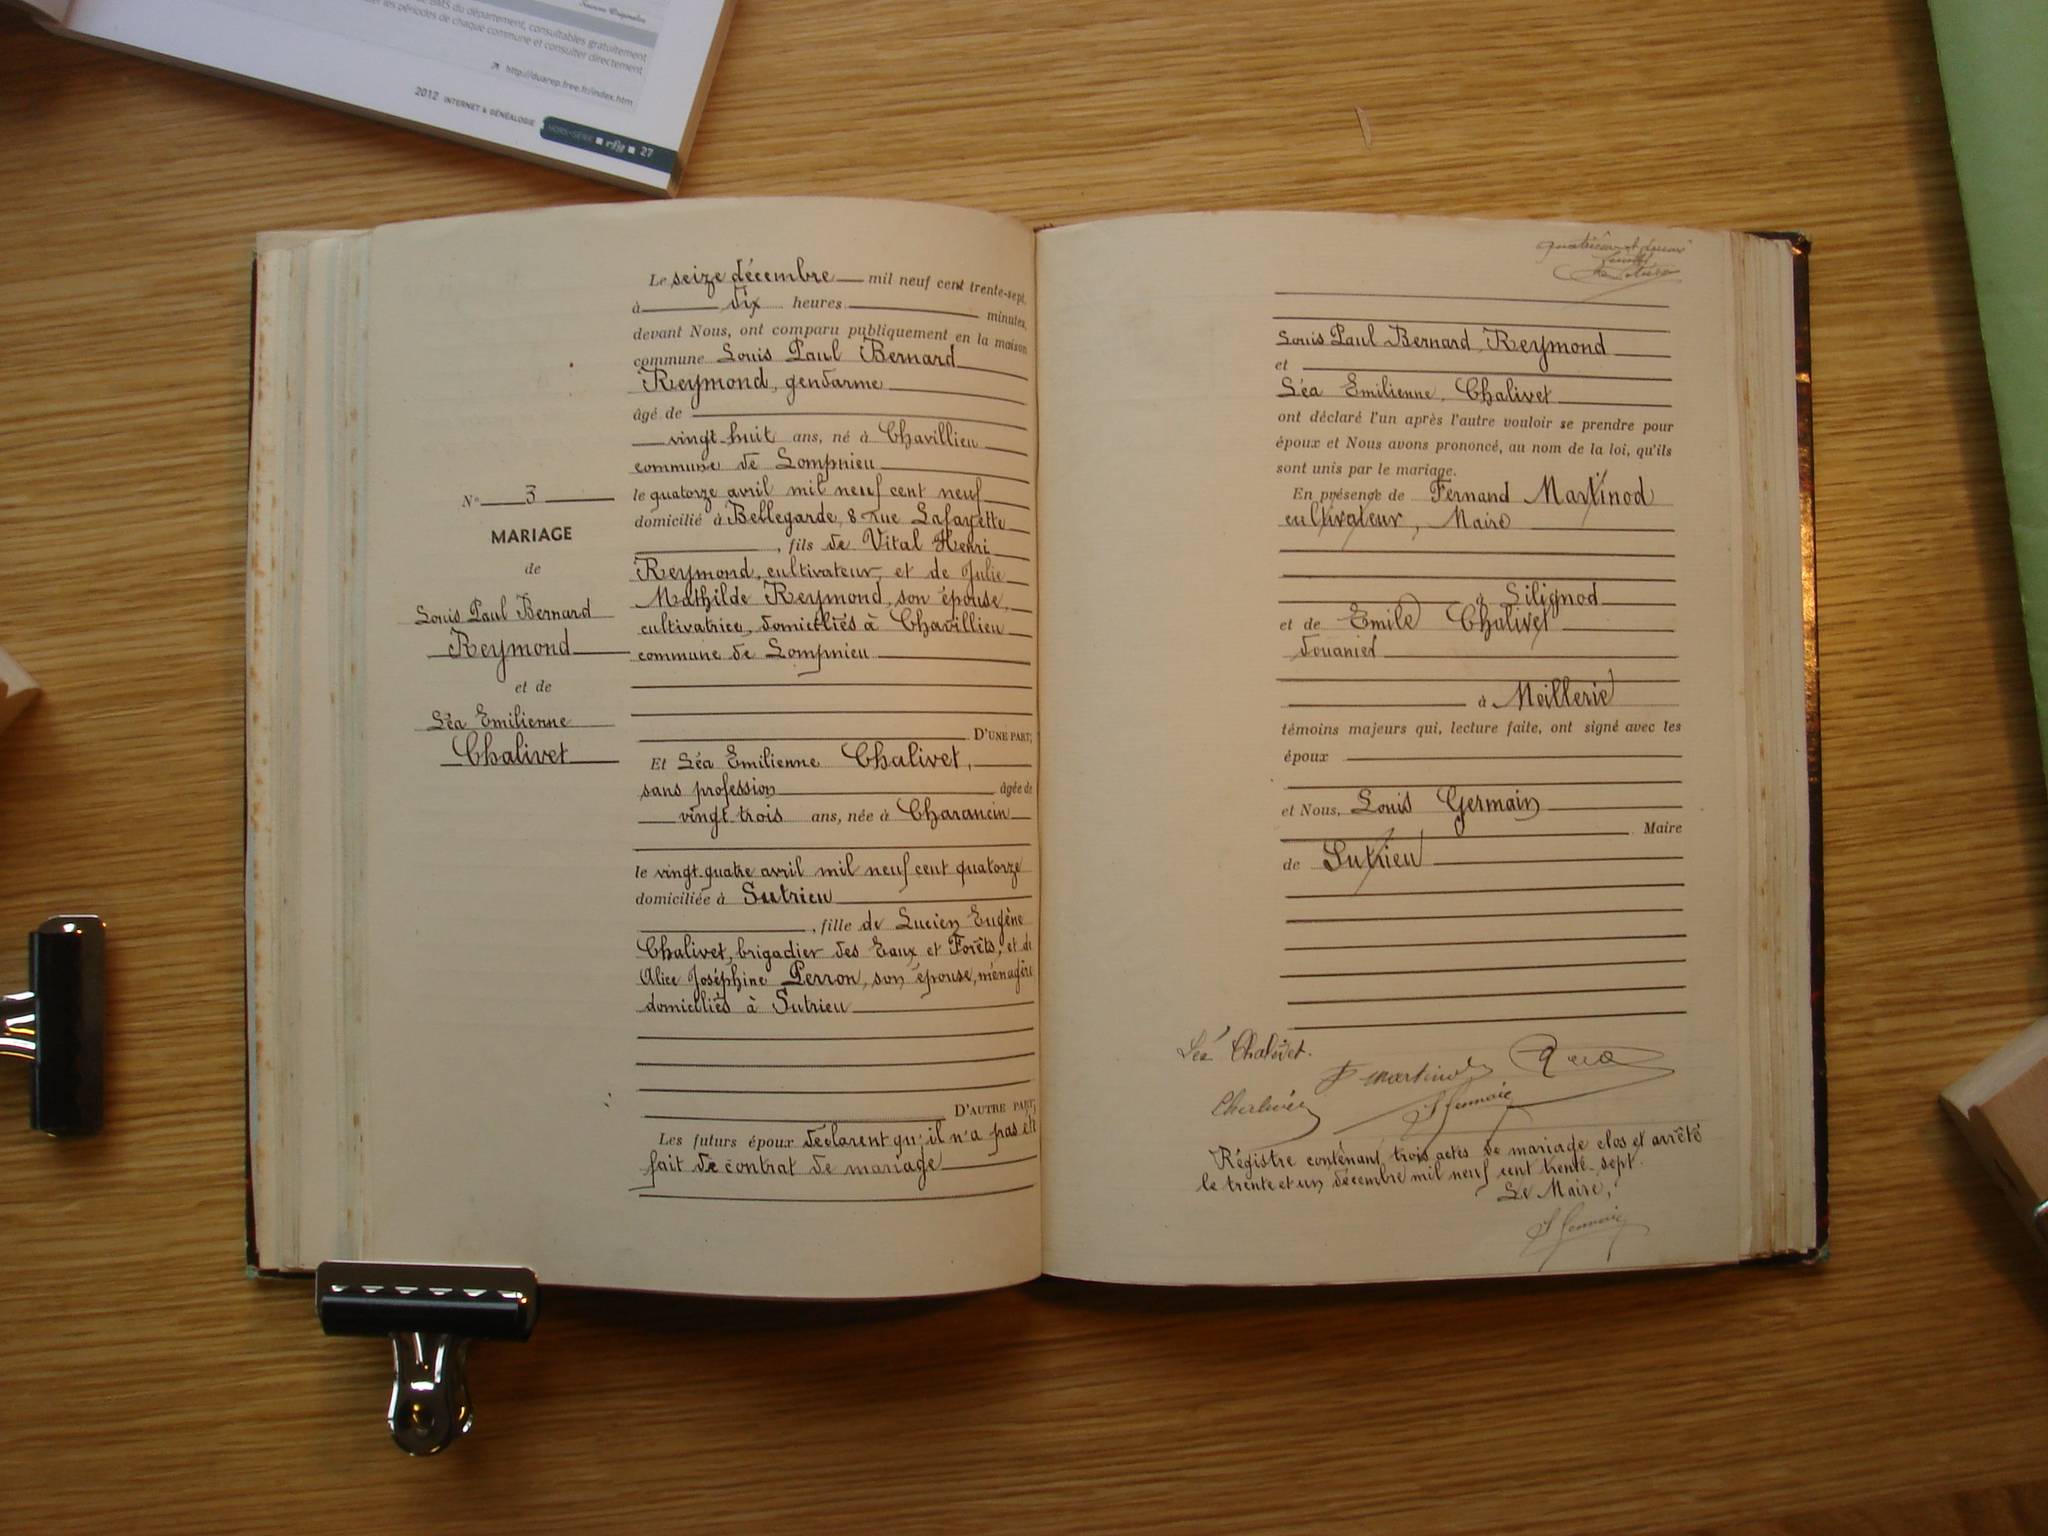 BMS du département, consultables gratuitement
les périodes de chaque commune et consulter directement
http://duarep.free.fr/index.htm
2012 INTERNET & GÉNÉALOGIE HORS-SÉRIE rfg 27
Le seize décembre mil neuf cent trente-sept,
à dix heures minutes,
devant Nous, ont comparu publiquement en la maison
commune Louis Paul Bernard
Reymond, gendarme
âgé de
vingt-huit ans, né à Chavillieu
commune de Lompnieu
le quatorze avril mil neuf cent neuf
domicilié à Bellegarde, 8 rue Lafayette
, fils de Vital Henri
Reymond, cultivateur, et de Julie
Mathilde Reymond, son épouse,
cultivatrice, domiciliés à Chavillieu
commune de Lompnieu
D'UNE PART;
Et Léa Emilienne Chalivet,
sans profession âgée de
vingt-trois ans, née à Charancin
le vingt-quatre avril mil neuf cent quatorze
domiciliée à Sutrieu
, fille de Lucien Eugène
Chalivet, brigadier des Eaux et Forêts, et de
Alice Joséphine Perron, son épouse, ménagère
domiciliés à Sutrieu
D'AUTRE PART;
Les futurs époux déclarent qu'il n'a pas été
fait de contrat de mariage
N° 3
MARIAGE
de
Louis Paul Bernard
Reymond
et de
Léa Emilienne
Chalivet
Louis Paul Bernard Reymond
et
Léa Emilienne Chalivet
ont déclaré l'un après l'autre vouloir se prendre pour
époux et Nous avons prononcé, au nom de la loi, qu'ils
sont unis par le mariage.
En présence de Fernand Martinod
cultivateur, Maire
à Lilignod
et de Emile Chalivet
douanier
à Meillerie
témoins majeurs qui, lecture faite, ont signé avec les
époux
et Nous, Louis Germain
Maire
de Sutrieu
Léa Chalivet.
F Martinod
Chalivet
L Germain
Régistre contenant trois actes de mariage clos et arrêté
le trente et un décembre mil neuf cent trente-sept.
Le Maire,
L Germain